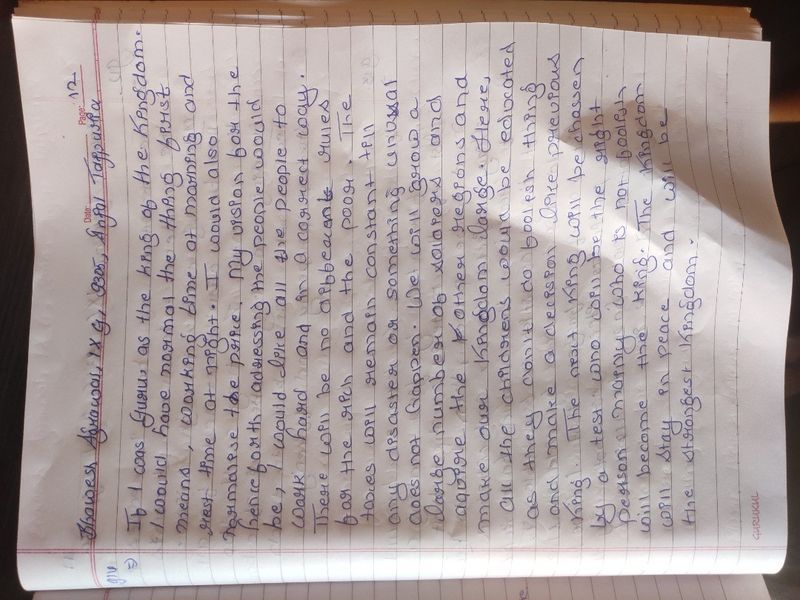 Page: 12
Date:
Bhavesh Agrawal, IX G, 9305, Anjul Tappuria
If I was Guru as the king of the Kingdom.
I would have normal the thing first
means, working time at morning and
rest time at night. I would also
formalise the prire. My vision for the
henceforth adressing the people would
be, I would like all the people to
work hard and in a correct way.
There will be no diffeacent rules
for the rich and the poor. The
taxes will remain constant till
any disaster or something unusual
does not happen. We will grow a
large number of soldiers and
aquire the other regions and
make our Kingdom large. Here,
all the childrens would be educated
as they can't do foolish thing
and make a decision like previous
king. The next king will be chossen
by a test who will be the right
person mainly who is not foolish
will become the king. The kingdom
will stay in peace and will be
the strongest Kingdom.
GURUKUL